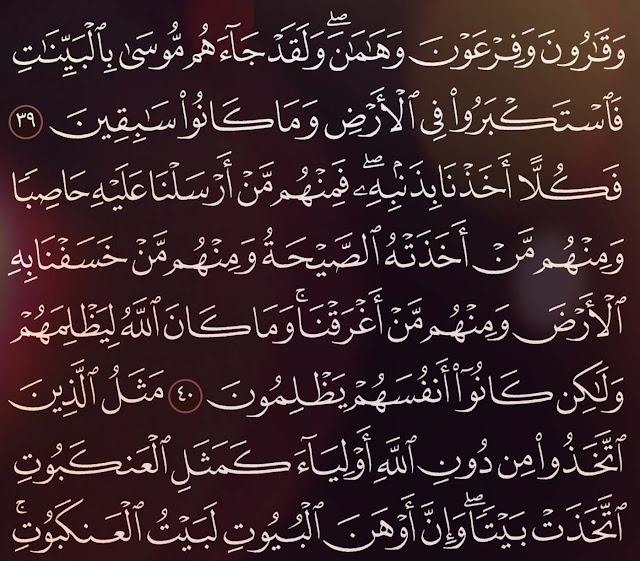 وَقَٰرُونَ وَفِرۡعَوۡنَ وَهَٰمَٰنَۖ وَلَقَدۡ جَآءَهُم مُّوسَىٰ بِٱلۡبَيِّنَٰتِ
فَٱسۡتَكۡبَرُواْ فِي ٱلۡأَرۡضِ وَمَا كَانُواْ سَٰبِقِينَ ٣٩
فَكُلًّا أَخَذۡنَا بِذَنۢبِهِۦۖ فَمِنۡهُم مَّنۡ أَرۡسَلۡنَا عَلَيۡهِ حَاصِبٗا
وَمِنۡهُم مَّنۡ أَخَذَتۡهُ ٱلصَّيۡحَةُ وَمِنۡهُم مَّنۡ خَسَفۡنَا بِهِ
ٱلۡأَرۡضَ وَمِنۡهُم مَّنۡ أَغۡرَقۡنَاۚ وَمَا كَانَ ٱللَّهُ لِيَظۡلِمَهُمۡ
وَلَٰكِن كَانُوٓاْ أَنفُسَهُمۡ يَظۡلِمُونَ ٤٠ مَثَلُ ٱلَّذِينَ
ٱتَّخَذُواْ مِن دُونِ ٱللَّهِ أَوۡلِيَآءَ كَمَثَلِ ٱلۡعَنكَبُوتِ
ٱتَّخَذَتۡ بَيۡتٗاۖ وَإِنَّ أَوۡهَنَ ٱلۡبُيُوتِ لَبَيۡتُ ٱلۡعَنكَبُوتِۚ